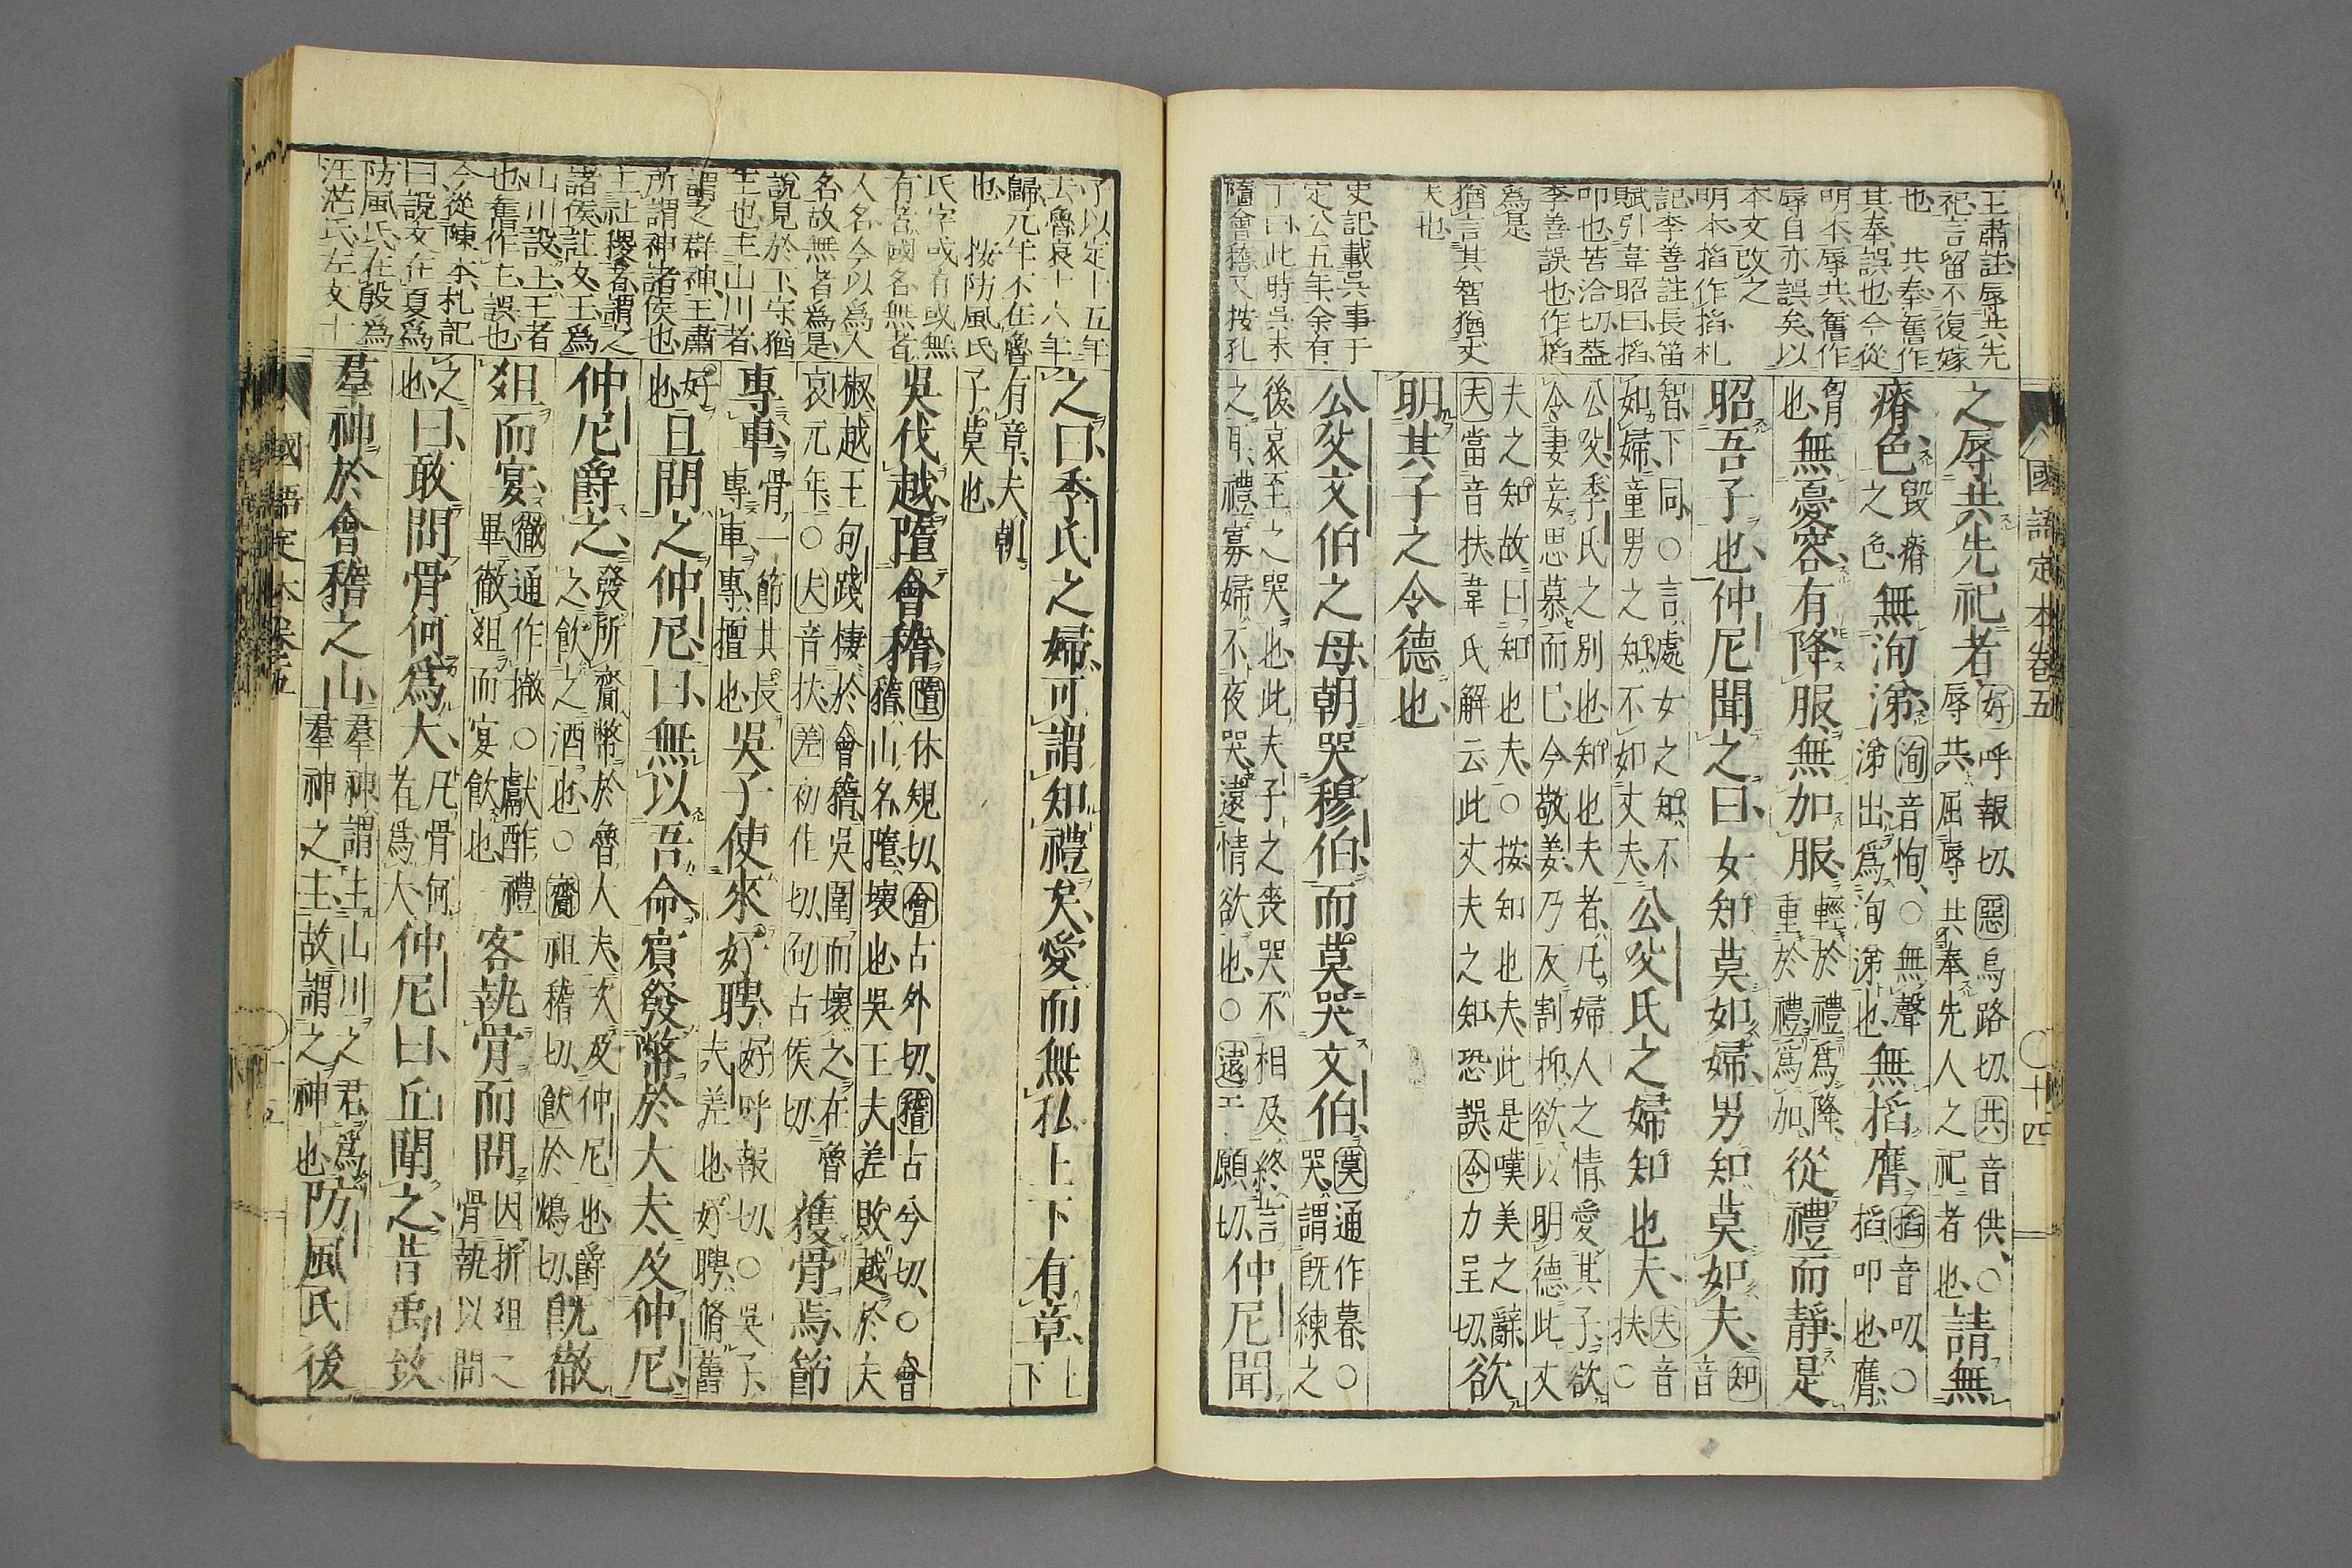 王肅註辱共先
祀言留不復嫁
也　共奉舊作
其奉誤也今從
明本辱共舊作
辱自亦誤矣以
本文改之
明本搯作掐札
記李善註長笛
賦引韋昭曰搯
叩也苦洽切葢
李善誤也作搯
爲是
猶言其智猶丈
夫也
史記載吳事于
定公五年余有
丁曰此時吳未
隳會稽又按孔
之辱共先祀者
好呼報切惡烏路切共音供○
辱共屈辱共奉先人之祀者也
請無
瘠色
毀瘠
之色
無洵涕
洵音恂○無聲
涕出爲洵涕也
無搯膺
搯音叨○
搯叩也膺
胷
也
無憂容有降服無加服
輕於禮爲降
重於禮爲加
從禮而靜是
昭吾子也仲尼聞之曰女知莫如婦男知莫如夫
知
音
智下同○言處女之知不
如婦童男之知不如丈夫
公父氏之婦知也夫
夫音
扶○
公父季氏之別也知也夫者凡婦人之情愛其子欲
令妻妾思慕而已今敬姜乃反割抑欲以明德此丈
夫之知故曰知也夫○按知也夫此是嘆美之辭
夫當音扶韋氏解云此丈夫之知恐誤令力呈切
欲
明其子之令德也
公父文伯之母朝哭穆伯而莫哭文伯
莫通作暮○
哭謂既練之
後哀至之哭也此夫子之喪哭不相及終言
之耳禮寡婦不夜哭遠情欲也○遠于願切
仲尼聞
國語定本卷五
○十四
子以定十五年
去魯哀十六年
歸元年不在魯
也　按防風氏
氏字或有或無
有者國名無者
人名今以爲人
名故無者爲是
說見於下守猶
主也主山川者
謂之群神王肅
所謂神諸侯也
王社稷者謂之
諸侯註文王爲
山川設上王者
也舊作主誤也
今從陳本札記
曰說文在夏爲
防風氏在殷爲
汪茫氏左文十
之曰季氏之婦可謂知禮矣愛而無私上下有章
上
下
有章夫朝
子莫也
吳伐越墮會稽
墮休規切會古外切稽古兮切○會
稽山名墮壞也吳王夫差敗越於夫
椒越王句踐棲於會稽吳圍而壞之在魯
哀元年○夫音扶差初佳切句古侯切
獲骨焉節
專車
骨一節其長
專車專擅也
吳子使來好聘
好呼報切○吳子
夫差也好聘脩舊
好
也
且問之仲尼曰無以吾命賓發幣於大夫及仲尼
仲尼爵之
發所齎幣於魯人夫夫及仲尼也爵
之飮之酒也○齎祖稽切飮於鴆切
既徹
俎而宴
徹通作撤○獻酢禮
畢徹俎而宴飮也
客執骨而問
因折俎之
骨執以問
之
也
曰敢問骨何爲大
凡骨何
者爲大
仲尼曰丘聞之昔禹致
羣神於會稽之山
羣神謂主山川之君爲
羣神之主故謂之神也
防風氏後
國語定本卷五
○十五